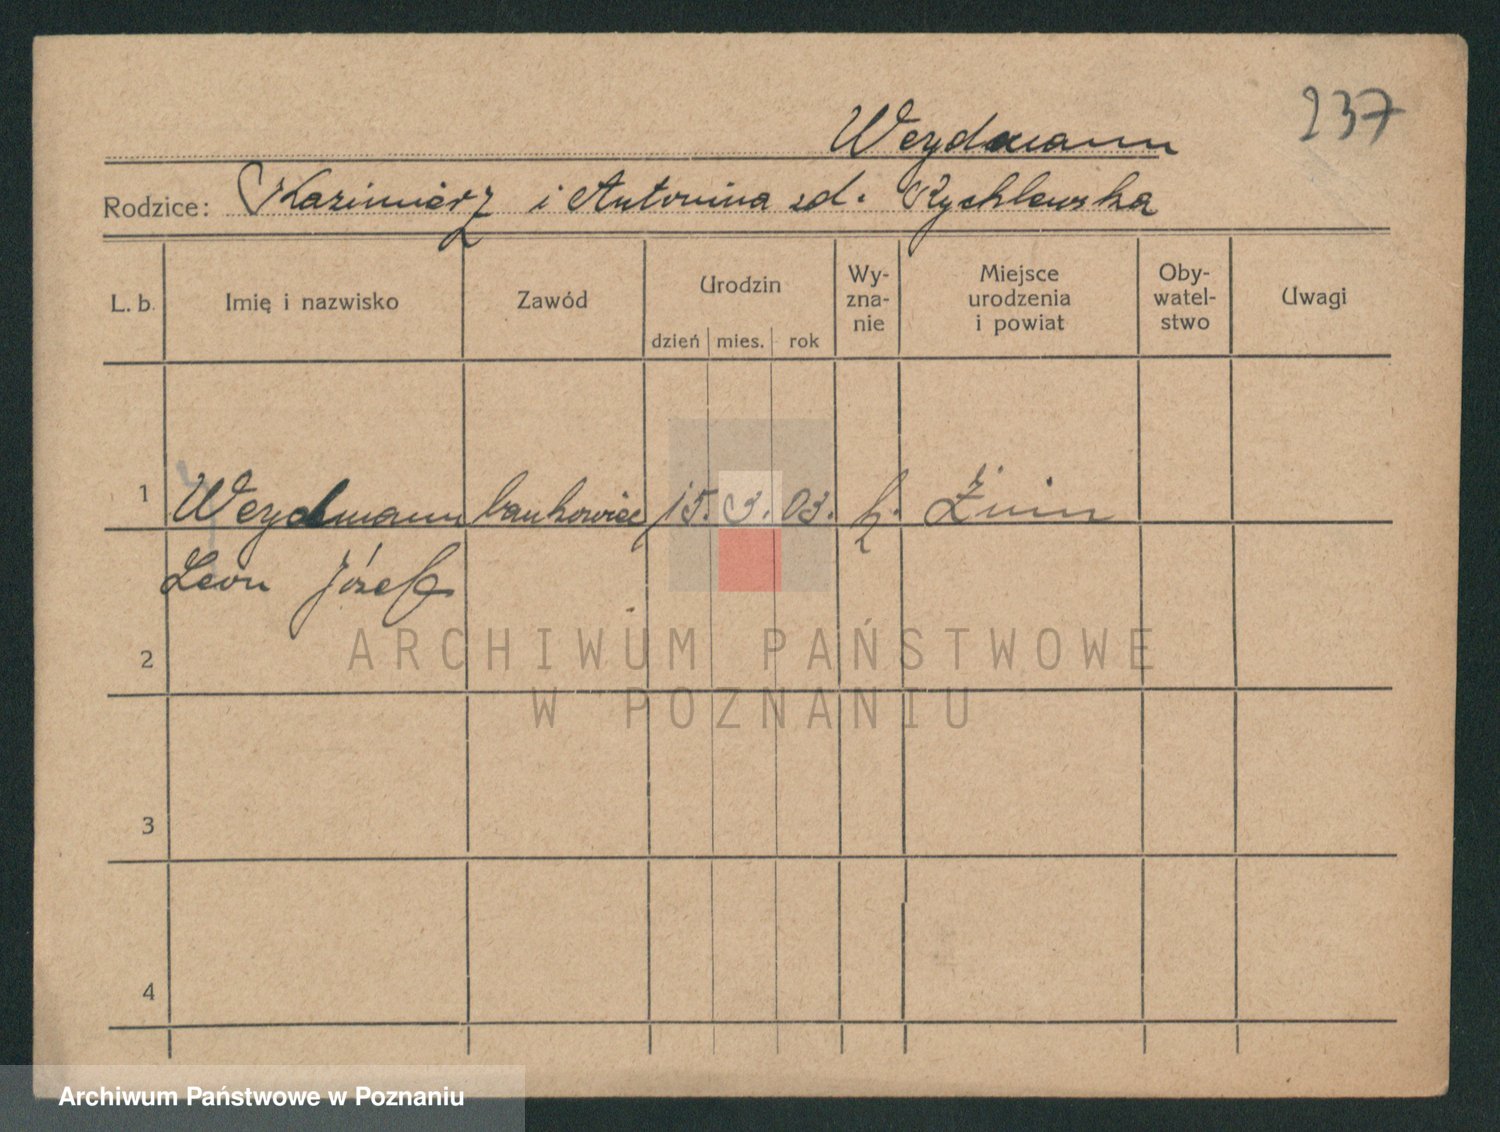 237
Weydmann
Rodzice: Kazimierz i Antonina zd. Rychlewska
L. b. Imię i nazwisko Zawód Urodzin Wy-zna-nie Miejsce urodzenia i powiat Oby-watel-stwo Uwagi
dzień mies. rok
1 Weydmann bankowiec 15. 3. 03. k. Żnin
Leon Józef
2
ARCHIWUM PAŃSTWOWE
W POZNANIU
3
4
Archiwum Państwowe w Poznaniu